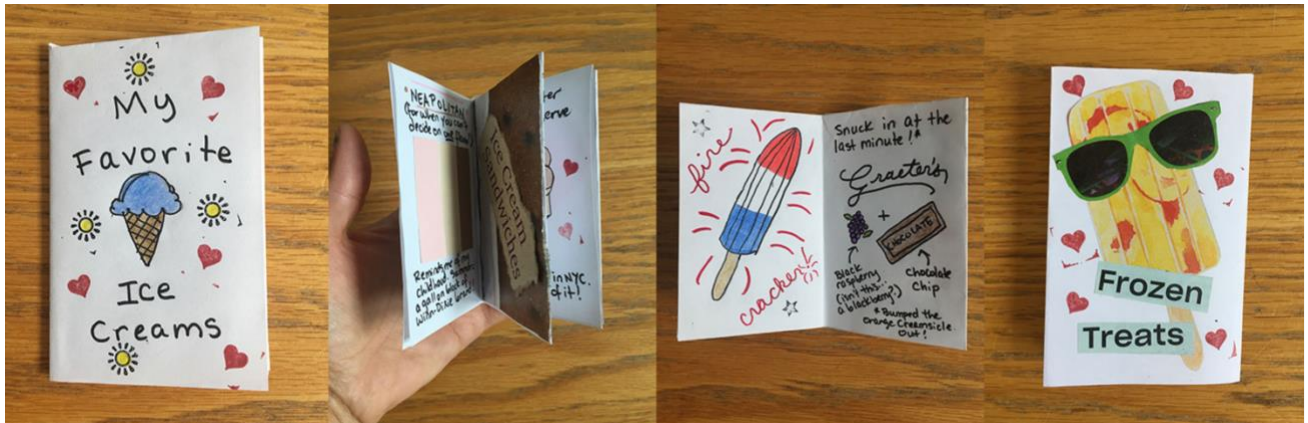 My
Favorite
Ice
Creams
*NEAPOLITAN
(for when you can't
decide on one flavor!)
Reminds me of my
childhood summers:
a gallon block of
Winn-Dixie brand
Ice Cream
Sandwiches
erve
in NYC.
of it!
fire
cracker
Snuck in at the
last minute!*
Graeter's
+
CHOCOLATE
Black
raspberry
(isn't this...
a blackberry?)
Chocolate
chip
*Bumped the
Orange Creamsicle
Out!
Frozen
Treats